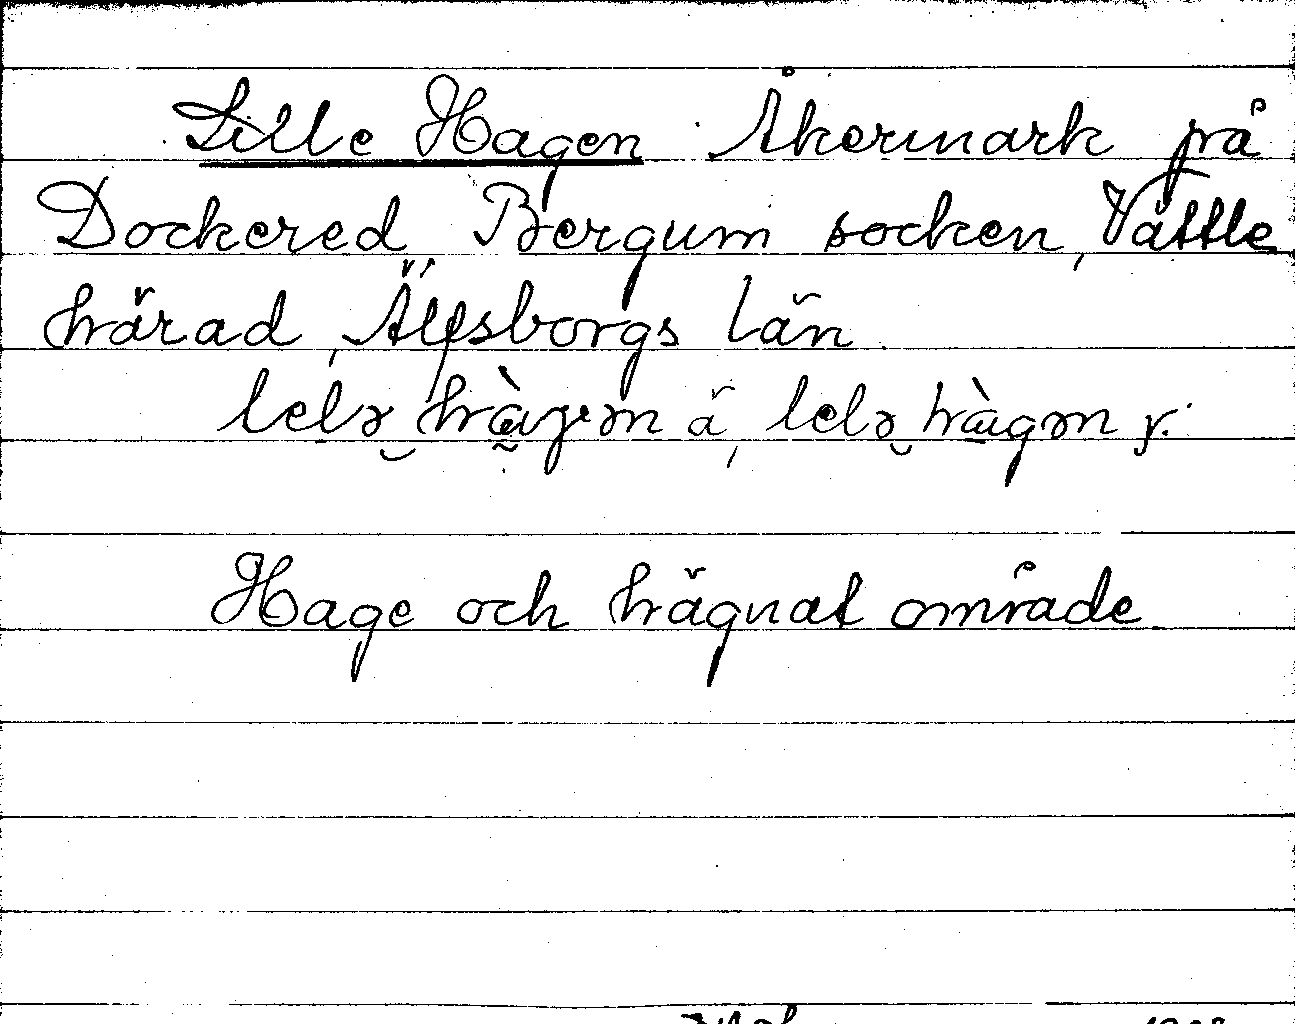 Lille Hagen Åkermark på
Dockered Bergum socken, Vättle
härad, Älfsborgs län.
lelə hàgən ä, lelə hàgən y.
Hage och hägnat område